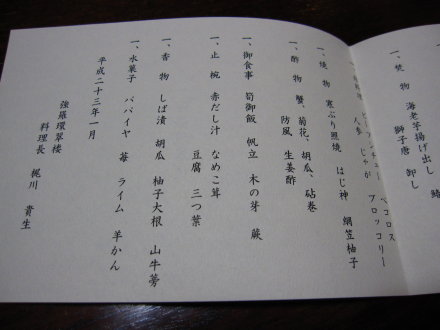 一、焚物 海老芋揚げ出し
獅子唐 卸し
シチュー ペコロス
人参 じゃが ブロッコリー
一、焼物 寒ぶり照焼 はじ神 網笠柚子
一、酢物 蟹、菊花、胡瓜、砧巻
防風 生姜酢
一、御食事 筍御飯 帆立 木の芽 蕨
一、止椀 赤だし汁 なめこ茸
豆腐 三つ葉
一、香物 しば漬 胡瓜 柚子大根 山牛蒡
一、水菓子 パパイヤ 苺 ライム 羊かん
平成二十三年一月
強羅環翠楼
料理長 梶川 貴生